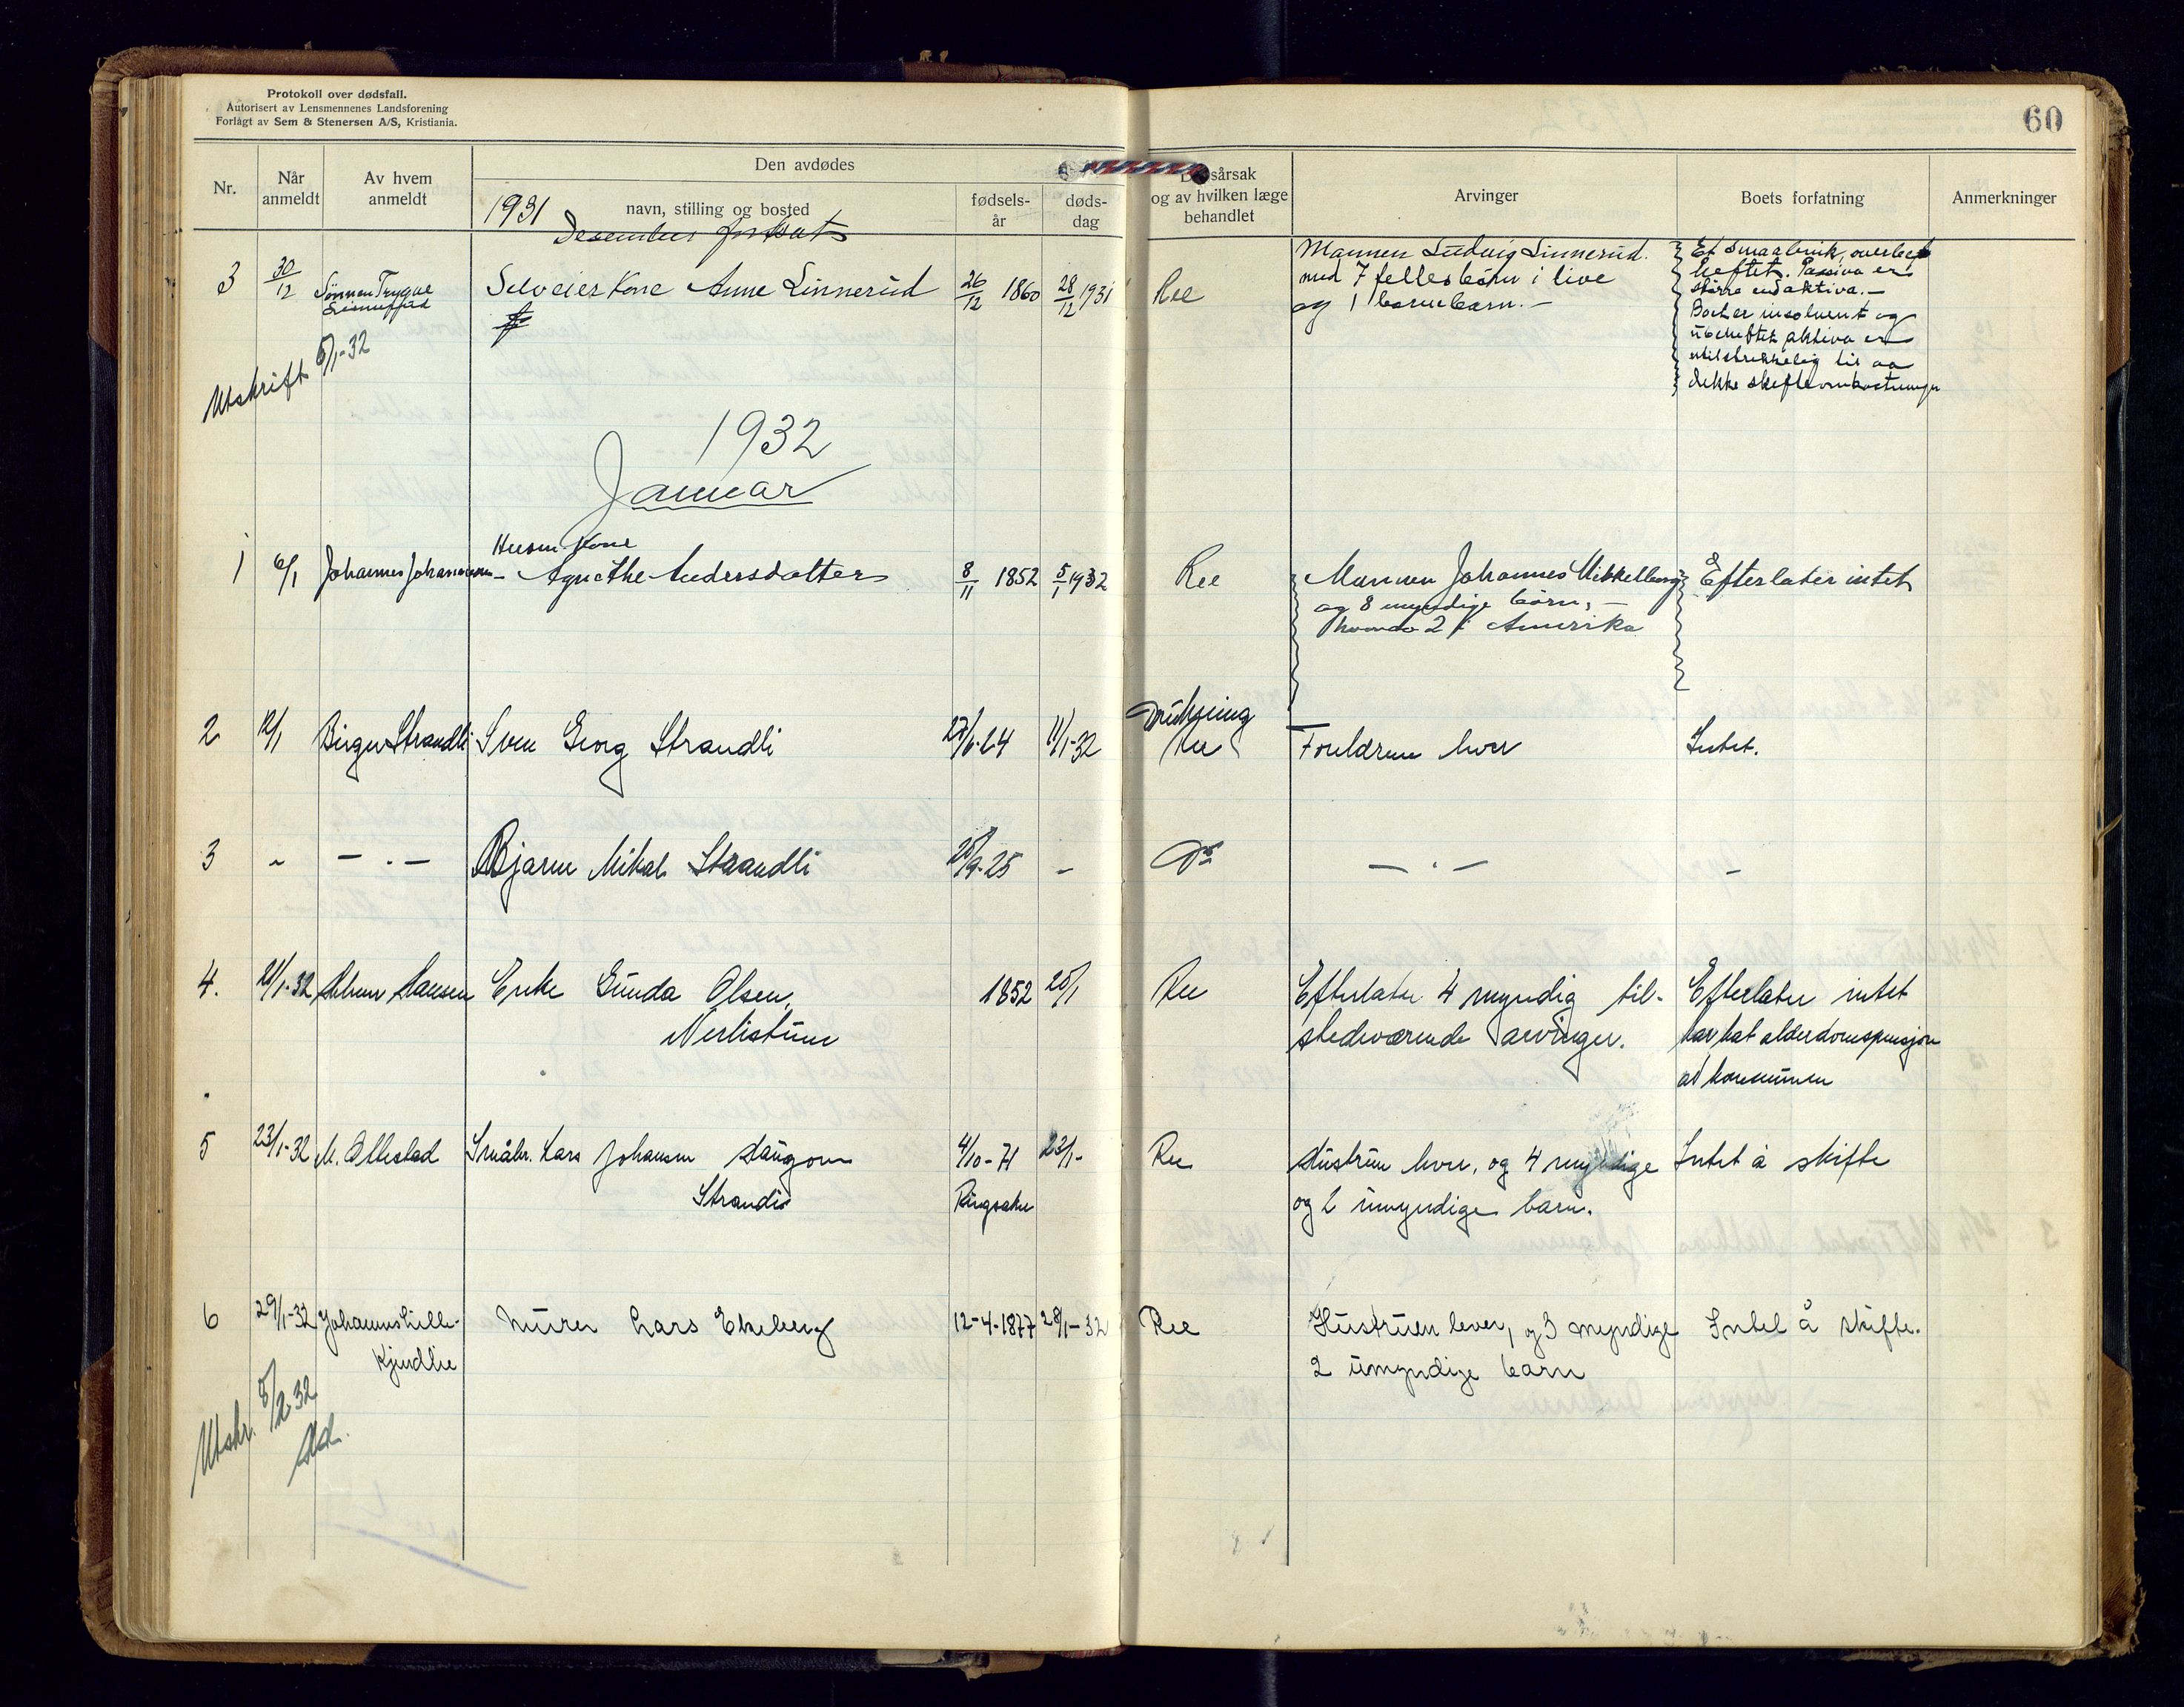 Protokoll over dødsfall.
Autorisert av Lensmennenes Landsforening
Forlagt av Sem & Stenersen A/S, Kristiania.
60
Nr.
Når anmeldt
Av hvem anmeldt
Den avdødes
1931 navn, stilling og bosted
fødsels-år
døds-dag
og av hvilken læge behandlet
Arvinger
Boets forfatning
Anmerkninger
Desember fortsat
3 30/12 Sønnen Trygve Linnerud Selveier Kone Anne Linnerud 26/12 1860 28/12 1931 Ree Mannen Ludvig Linnerud
med 7 felles børn i live
og 1 barnebarn. -
Et smaabruk, overbe-
heftet. Passiva er
større end aktiva. -
Boet er insolvent og
ubeheftet aktiva er
utilstrekkelig til aa
dekke skifteomkostninger
Utskrift 5/1-32
1932
Januar
Husm. Kone
1 6/1 Johannes Johannessen - Agnethe Andersdatter 8/11 1852 5/1 1932 Ree Mannen Johannes Mikkelberg Efterlater intet
og 8 myndige børn, -
hvorav 2 i Amerika
Drukning
2 12/1 Birger Strandli Sven Georg Strandli 27/6-24 11/1-32 Ree Foreldrene lever Intet.
3 " - . - Bjarne Mikal Strandli 25/9-25 - Do - . - -
4. 21/1-32 Hansen Enke Gunda Olsen, 1852 20/1 Ree Efterlater 4 myndig til- Efterlater intet
Nerlistuen stedeværende arvinger. har hat alderdomspensjon
av kommunen
5 23/1-32 M. Ollestad Småbr. Lars Johansen Haugom 4/10-71 22/1- Ree Hustruen lever, og 4 myndige Intet å skifte
Strandli Ringsaker og 2 umyndige barn.
6 29/1-32 Johannes Lille- Murer Lars Ekeberg 12-4-1877 28/1-32 Ree Hustruen lever, og 3 myndige Intet å skifte.
Kjindlie 2 umyndige barn
Utskr. 5/2-32